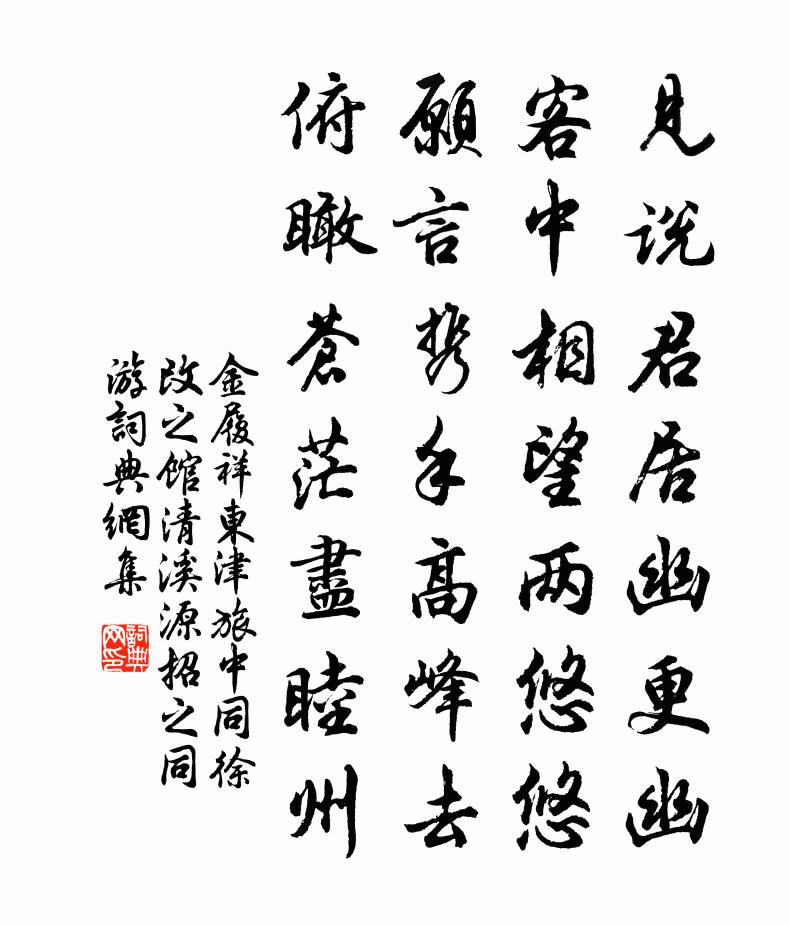 見説君居幽更幽
客中相望两悠悠
願言携手高峰去
俯瞰蒼茫盡睦州
金履祥東津旅中同徐
改之館清溪源招之同
游詞典網集
詞典网印